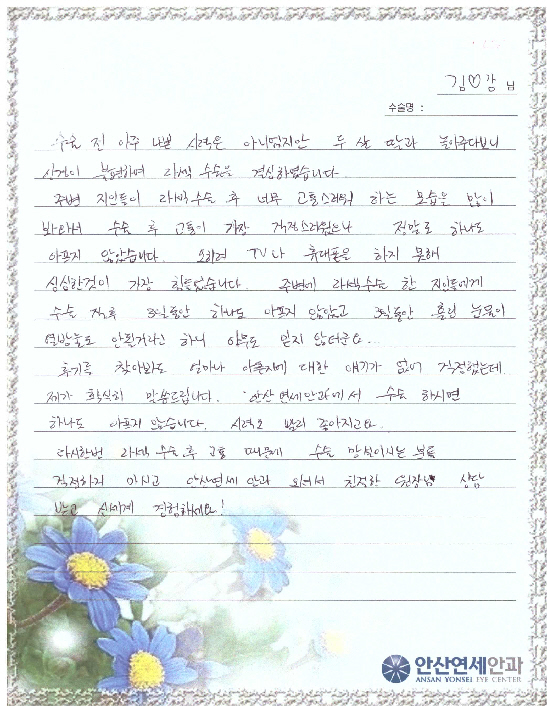 김♡강 님
수술명 :
수술 전 아주 나쁜 시력은 아니였지만 두 살 딸과 놀아주다보니
안경이 불편하여 라섹 수술을 결심하였습니다.
주변 지인들이 라섹수술 후 너무 고통스러워 하는 모습을 많이
봐와서 수술 후 고통이 가장 걱정스러웠으나 정말로 하나도
아프지 않았습니다. 오히려 TV나 휴대폰을 하지 못해
심심한것이 가장 힘들었습니다. 주변에 라섹수술 한 지인들에게
수술 직후 3일동안 하나도 아프지 않았고 3일동안 흘린 눈물이
열방울도 안된거라고 하니 아무도 믿지 않더군요.
후기를 찾아봐도 얼마나 아픈지에 대한 얘기가 없어 걱정했는데
제가 확실히 말씀드립니다. 안산연세안과에서 수술 하시면
하나도 아프지 않습니다. 시력도 빨리 좋아지고요.
다시한번 라섹 수술 후 고통 때문에 수술 망설이시는 분들
걱정하지 마시고 안산연세안과 오셔서 친절한 원장님 상담
받고 신세계 경험하세요!
안산연세안과
ANSAN YONSEI EYE CENTER